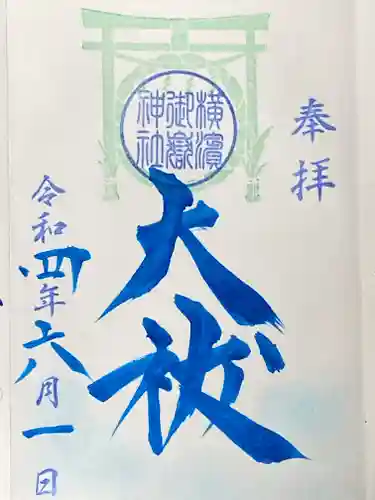 奉拝
横濵
御嶽
神社
大祓
令和四年六月一日